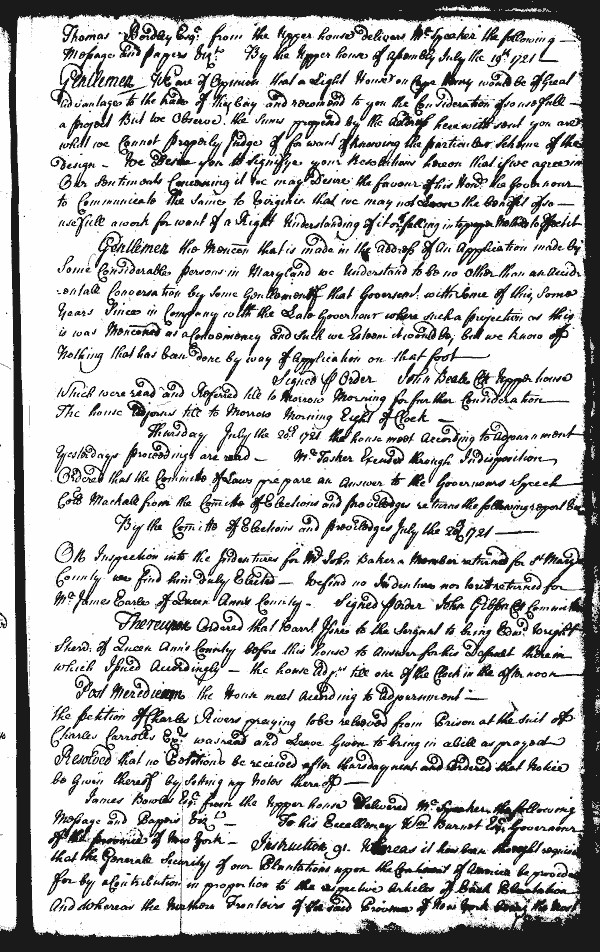 Thomas Bordley Esqr. from the Upper house delivers Mr. Speaker the following
Message and papers Vizt. By the Upper house of Assembly July the 19th 1721
Gentlemen We are of Opinion that a Light House on Cape Henry would be of Great
advantage to the trade of this bay and recomend to you the Consideration of so usefull
a project But we Observe the Sums proposed by the Address herewith sent you are
what we Cannot properly Judge of for want of knowing the particular Scheme of the
design - We Desire you to signifye your Resolutions hereon that if we agree in
Our Sentiments Concerning it we may Desire the favour of his Honr. the Governour
to Communicate the Same to Virginia that we may not the benefit of so
usefull a work for want of a Right Understanding of it or falling into proper to Effect it
Gentlemen the Mencon that is made in the Address of An Application made by
Some Considerable persons in Maryland we Understand to be no other than an Accid-
entall Conversation by some Gentlemen of that Governmt. with some of this, Some
Years Since in Company with the Late Governour where such a projection as this
is was Menconed as a Conveniency and such we Esteem it would be, but we know of
Nothing that has been done by way of Application on that foot
Signed p Order John Beale Cl Upper house
Which were read and Referred till to Morrow Morning for further Consideration
The house Adjourns till to Morrow Morning Eight of Clock
Thursday July the 20th 1721 the house meet According to Adjournment
Yesterdays proceedings are read - Mr. Tasker Excused through Indisposition
Ordered that the Committe of Laws prepare an Answer to the Governours Speech
Coll Mackall from the Comitte of Elections and priviledges returns the following report
By the Comitte of Elections and priviledges July the 20th 1721
On Inspection into the Indentures for Mr John Baker a Member returned for St Marys
County we find him Duly Elected - We find no Indenture nor writ returned for
Mr. James Earle of Queen Anns County - Signed p order John Gresham Cl Committe
Thereupon Ordered that Warrt Issue to the Serjant to bring Edwd. Wright
Sherif. of Queen Anns County before this house to Answer for his Default therein
which Issued Accordingly - the house Adjns till one of the Clock in the afternoon
Post Meridiem the House meet According to Adjournment
the petition of Charles Rivers praying to be releived from Prison at the suit of
Charles Carroll Esqr. was read and Leave Given to bring in a bill as prayed
Resolved that no Petitions be received after thursday next and Ordered that Notice
be Given thereof by Setting up Notes thereof
James Bowles Esqr. from the Upper house Delivered Mr. Speaker the following
Message and Papers Vizt. - To his Excellency Wm Burnet Esqr. Governour
of the province of New York - Instruction 91. Whereas it has been thought requisite
that the Generall Security of our Plantations upon the Continent of America be provided
for by a Contribution in proportion to the respective Abilities of Each Plantation
And Whereas the Northern Frontiers of the said Province of New York being the most